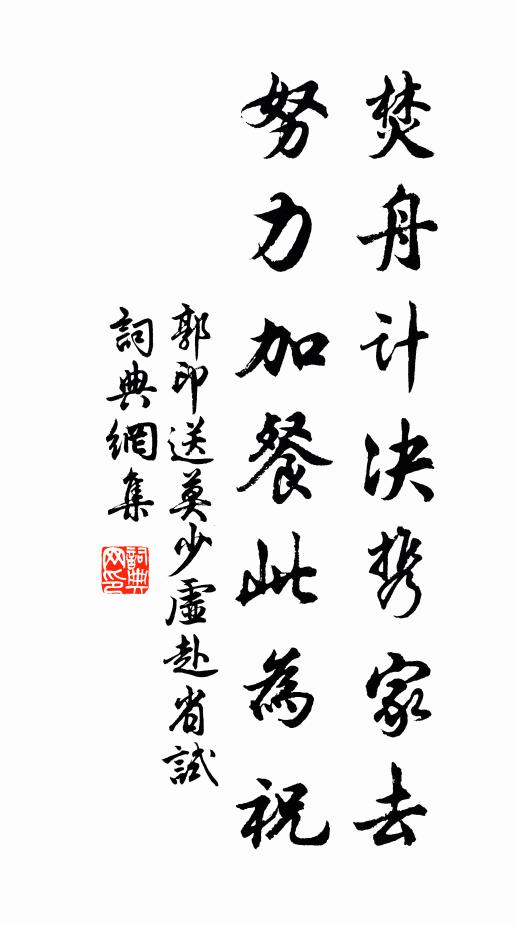 焚舟计决携家去
努力加餐此為祝
郭印送莫少虛赴省試
詞典網集
詞典网印